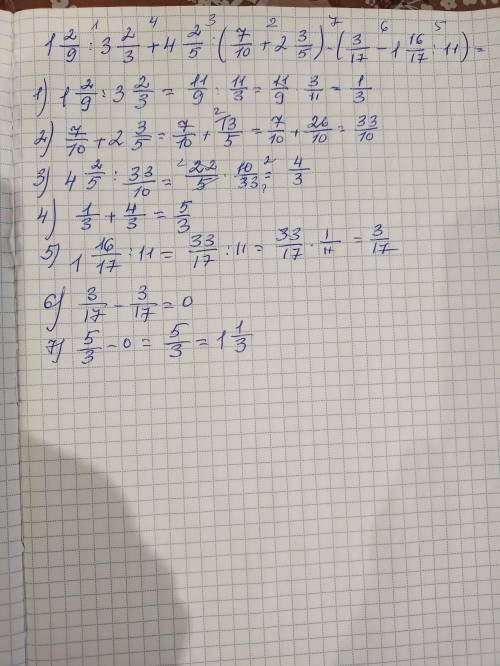 1 2/9 : 3 2/3 + 4 2/5 : (7/10 + 2 3/5) - (3/17 - 1 16/17 : 11) =
1) 1 2/9 : 3 2/3 = 11/9 : 11/3 = 11/9 · 3/11 = 1/3
2) 7/10 + 2 3/5 = 7/10 + 13/5 = 7/10 + 26/10 = 33/10
3) 4 2/5 : 33/10 = 22/5 · 10/33 = 4/3
4) 1/3 + 4/3 = 5/3
5) 1 16/17 : 11 = 33/17 : 11 = 33/17 · 1/11 = 3/17
6) 3/17 - 3/17 = 0
7) 5/3 - 0 = 5/3 = 1 1/3